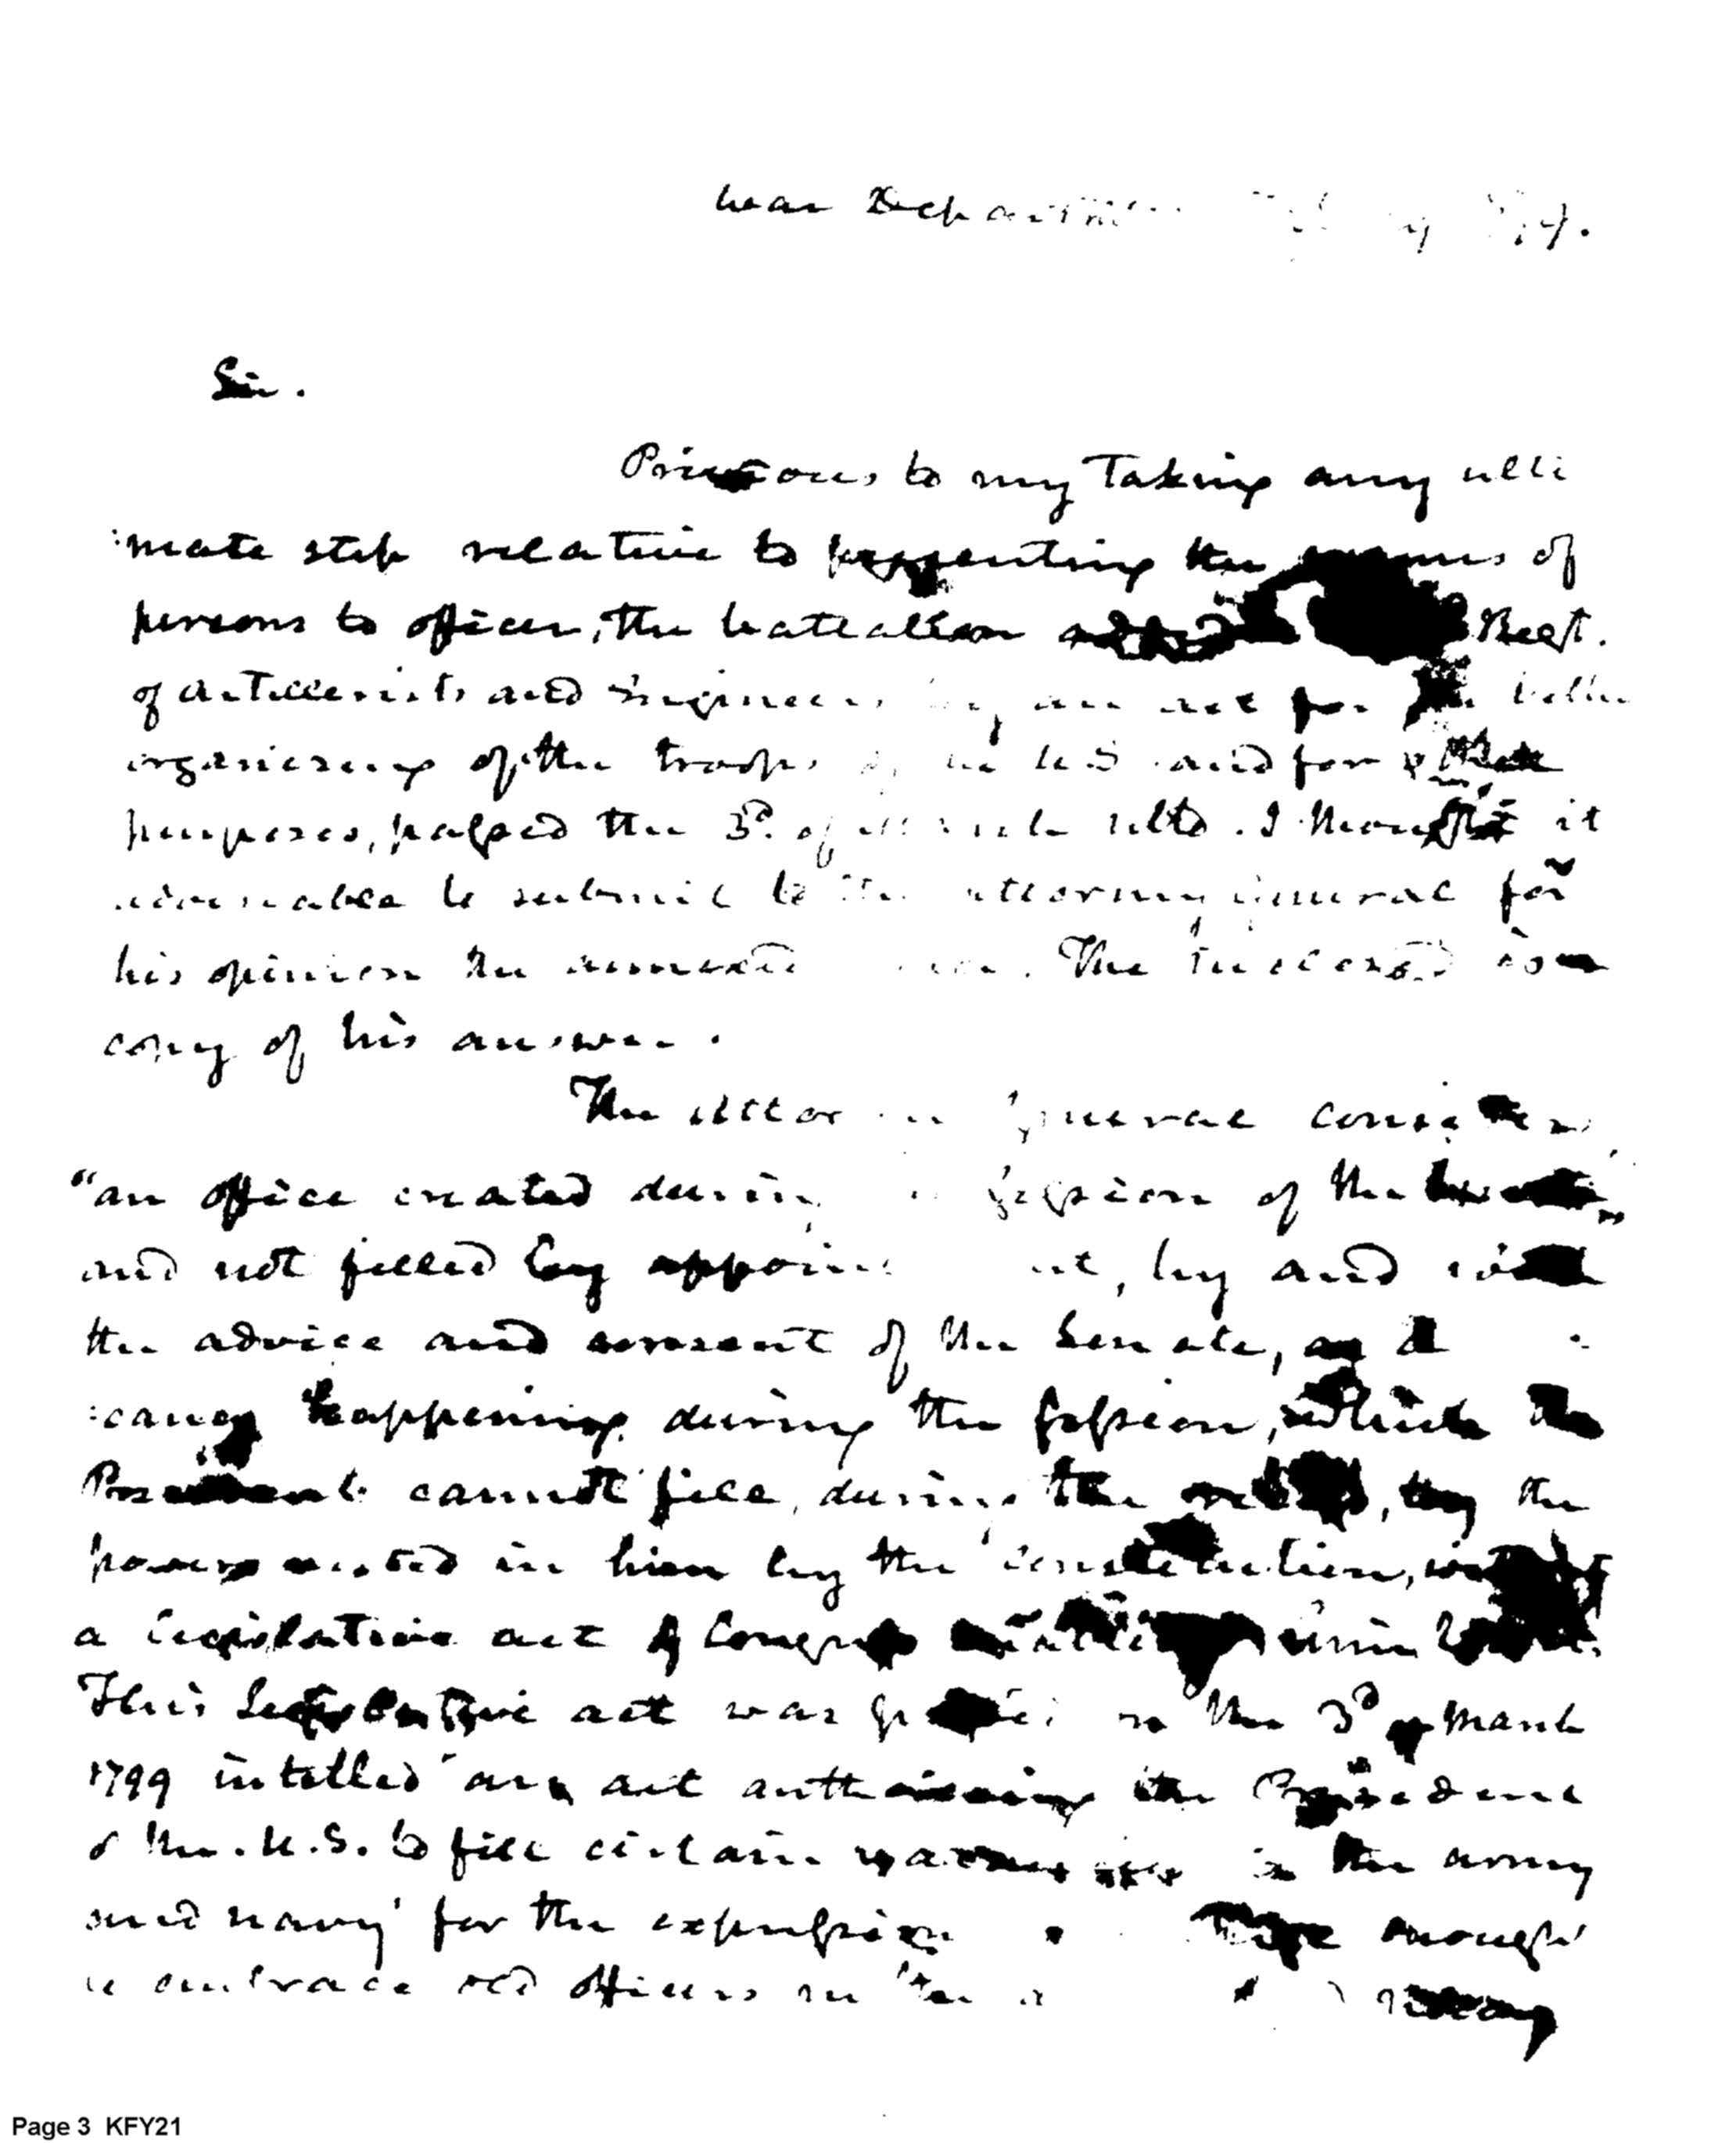 War Department
Sir.
Previous to my taking any ulti
:mate step relative to presenting the names of
persons to officer, the batallion added Regt.
of Artillerists and Engineers by an act for the better
organizing of the troops of the U S. and for other
purposes, passed the 3d. of March ulto. I thought it
adviseable to submit to the attorney general for
his opinion the annexed. The inclosed is a
copy of his answer.
The Attorney General considers
"an office created during session of the
and not filled by appointment, by and with
the advice and consent of the Senate, as a
:cancy happening during the session, which the
President cannot fill, during the recess, by the
powers vested in him by the constitution,
a legislative act of Congress
This Legislative act was passed on the 3d of March
1799 intitled "an act authorising the President
of the. U. S. to fill certain vacancies in the army
and navy" for the expression large enough
to embrace all offices in the navy
Page 3 KFY21